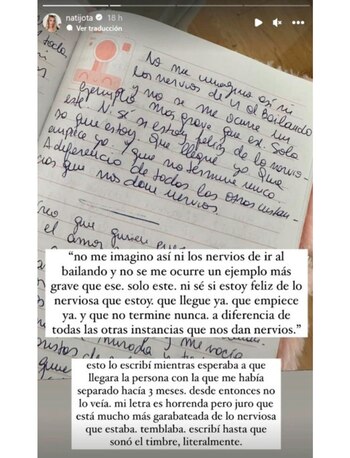 natijota 18 h
Ver traducción
No me imagino así ni
los nervios de ir al Bailando
y no se me ocurre un
ejemplo más grave que ese. Solo
este. Ni sé si estoy feliz de lo nervio-
sa que estoy. Que llegue ya. Que
empiece ya. Y que no termine nunca.
A diferencia de todas las otras instan-
cias que nos dan nervios.
que quien
el amor
“no me imagino así ni los nervios de ir al
bailando y no se me ocurre un ejemplo más
grave que ese. solo este. ni sé si estoy feliz de lo
nerviosa que estoy. que llegue ya. que empiece
ya. y que no termine nunca. a diferencia de
todas las otras instancias que nos dan nervios.”
esto lo escribí mientras esperaba a que
llegara la persona con la que me había
separado hacía 3 meses. desde entonces no
lo veía. mi letra es horrenda pero juro que
está mucho más garabateada de lo nerviosa
que estaba. temblaba. escribí hasta que
sonó el timbre, literalmente.